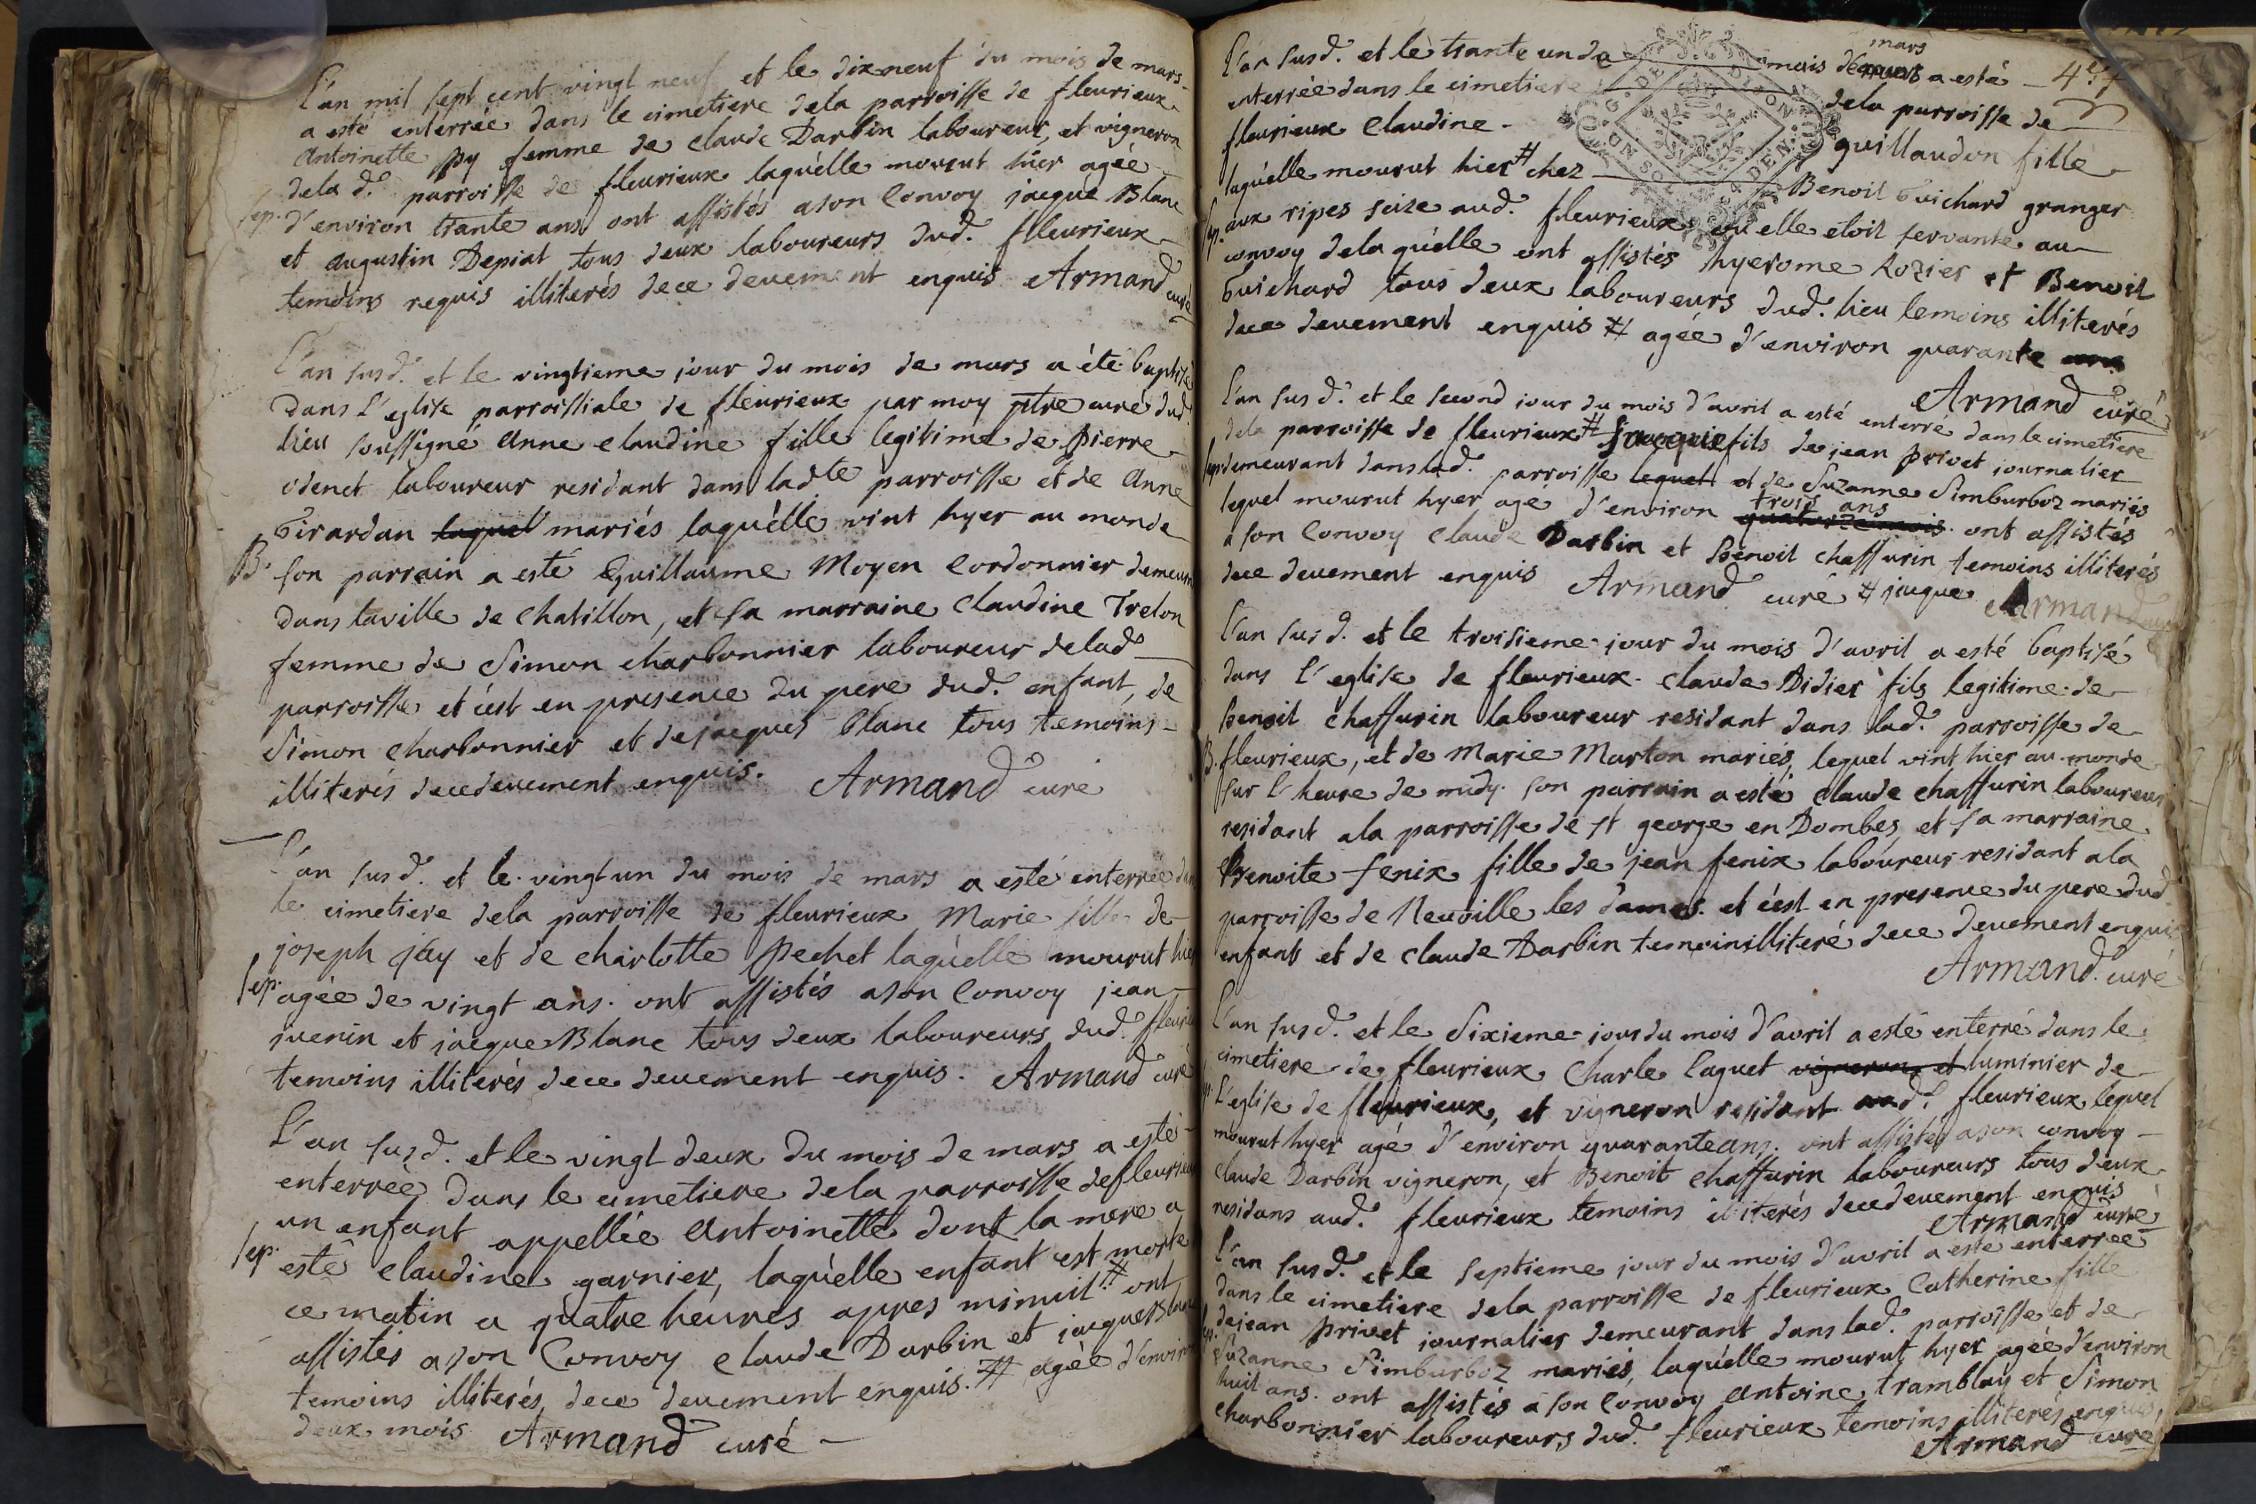 L'an mil sept cent vingt neuf et le dixneuf du mois de mars
a esté enterrée dans le cimetiere dela parroisse de fleurieux
Antoinette py femme de claude Darbin laboureur, et vigneron
dela d. parroisse de fleurieux laquélle mourut hier agée
Sep. d'environ trante ans ont assistés a son Convoy jacque Blanc
et augustin Depiat tous deux laboureurs dud. fleurieux
temoins requis illiterés dece deuement enquis Armand curé
L'an susd. et le vingtieme jour du mois de mars a éte baptisé
dans l'eglise parroissiale de fleurieux par moy ptre curé dud.
lieu soussigné anne claudine fille legitime de pierre
odenet laboureur residant dans ladte parroisse et de anne
Girardan laquel mariés laquélle vint hyer au monde
B. son parrain a esté Guillaume Moyen Cordonnier demeurn
dans la ville de chatillon, et sa marraine Claudine Trelon
femme de Simon charbonnier laboureur delad.
parroisse, et c'est en presence du pere dud. enfant, de
Simon charbonnier et de jacques blanc tous temoins
illiterés dece deuement enquis. Armand curé
L'an susd. et le vingt un du mois de mars a esté enterrée dan
le cimetiere dela parroisse de fleurieux Marie fille de
joseph jay et de charlotte pechet laquélle mourut hier
Sep. agée de vingt ans. ont assistés ason Convoy jean
juenin et jacque Blanc tous deux laboureurs dud. fleurieu
temoins illiterés dece deuement enquis. Armand curé
L'an susd. et le vingt deux du mois de mars a esté
enterrée dans le cimetiere dela parroisse de fleurieu
un enfant appellée antoinette dont la mere a
Sep. esté claudine garnier, laquélle enfant est morte
ce matin a quatre heures appres minuit # ont
assistés ason Convoy claude Darbin et jacques blanc
temoins illiterés, dece deuement enquis. # agée d'environ
deux mois Armand curé
L'an susd. et le trante un du mois de mars a esté 4e.
enterrée dans le cimetiere dela parroisse de
fleurieux Claudine guillaudon fille
laquélle mourut hier # chez Benoit Guichard granger
Sep. aux ripes seize aud. fleurieux, ou elle etoit servante au
convoy dela quélle ont assistés hyerome Rozier et Benoit
Guichard tous deux laboureurs dud. lieu temoins illiterés
dece deuement enquis # agée d'environ quarante ans
Armand curé
L'an susd. et le second jour du mois d'avril a esté enterré dans le cimetiere
dela parroisse de fleurieux # fils de jean privet journalier
Sep. demeurant dans lad. parroisse lequel et de Suzanne Simburboz mariés
lequel mourut hyer agé d'environ quatorze mois trois ans ont assistés
a son Convoy claude Darbin et Benoit chaffurin temoins illiterés
dece deuement enquis Armand curé # jacque Armand curé
L'an susd. et le troisieme jour du mois d'avril a esté baptisé
dans l'eglise de fleurieux. claude Didier fils legitime de
benoit chaffurin laboureur residant dans lad. parroisse de
B. fleurieux, et de Marie Marton mariés, lequel vint hier au monde
sur l'heure de midy. son parrain a esté claude chaffurin laboureur
residant ala parroisse de st george en Dombes, et sa marraine
Benoite fenix fille de jean fenix laboureur residant ala
parroisse de Neuville les dames. et c'est en presence du pere dud.
enfant et de claude Darbin temoin illiteré dece deuement enquis
Armand curé
L'an susd. et le Sixieme jour du mois d'avril a esté enterré dans le
cimetiere de fleurieux Charle Caguet vigneron et luminier de
l'eglise de fleurieux, et vigneron residant aud. fleurieux lequel
mourut hyer agé d'environ quarante ans. ont assistés ason convoy
claude Darbin vigneron, et Benoit chaffurin laboureurs tous deux
residans aud. fleurieux temoins illiterés dece deuement enquis
Armand curé
L'an susd. et le septieme jour du mois d'avril a esté enterrée
dans le cimetiere dela parroisse de fleurieux Catherine fille
de jean privet journalier demeurant dans lad. parroisse et de
Suzanne Simburboz mariés, laquélle mourut hyer agée d'environ
huit ans. ont assistés a son Convoy antoine tramblay et Simon
charbonnier laboureurs dud. fleurieux temoins illiterés enquis,
Armand curé